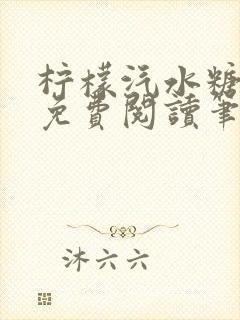 柠檬汽水糖
免費閱讀筆
沐六六